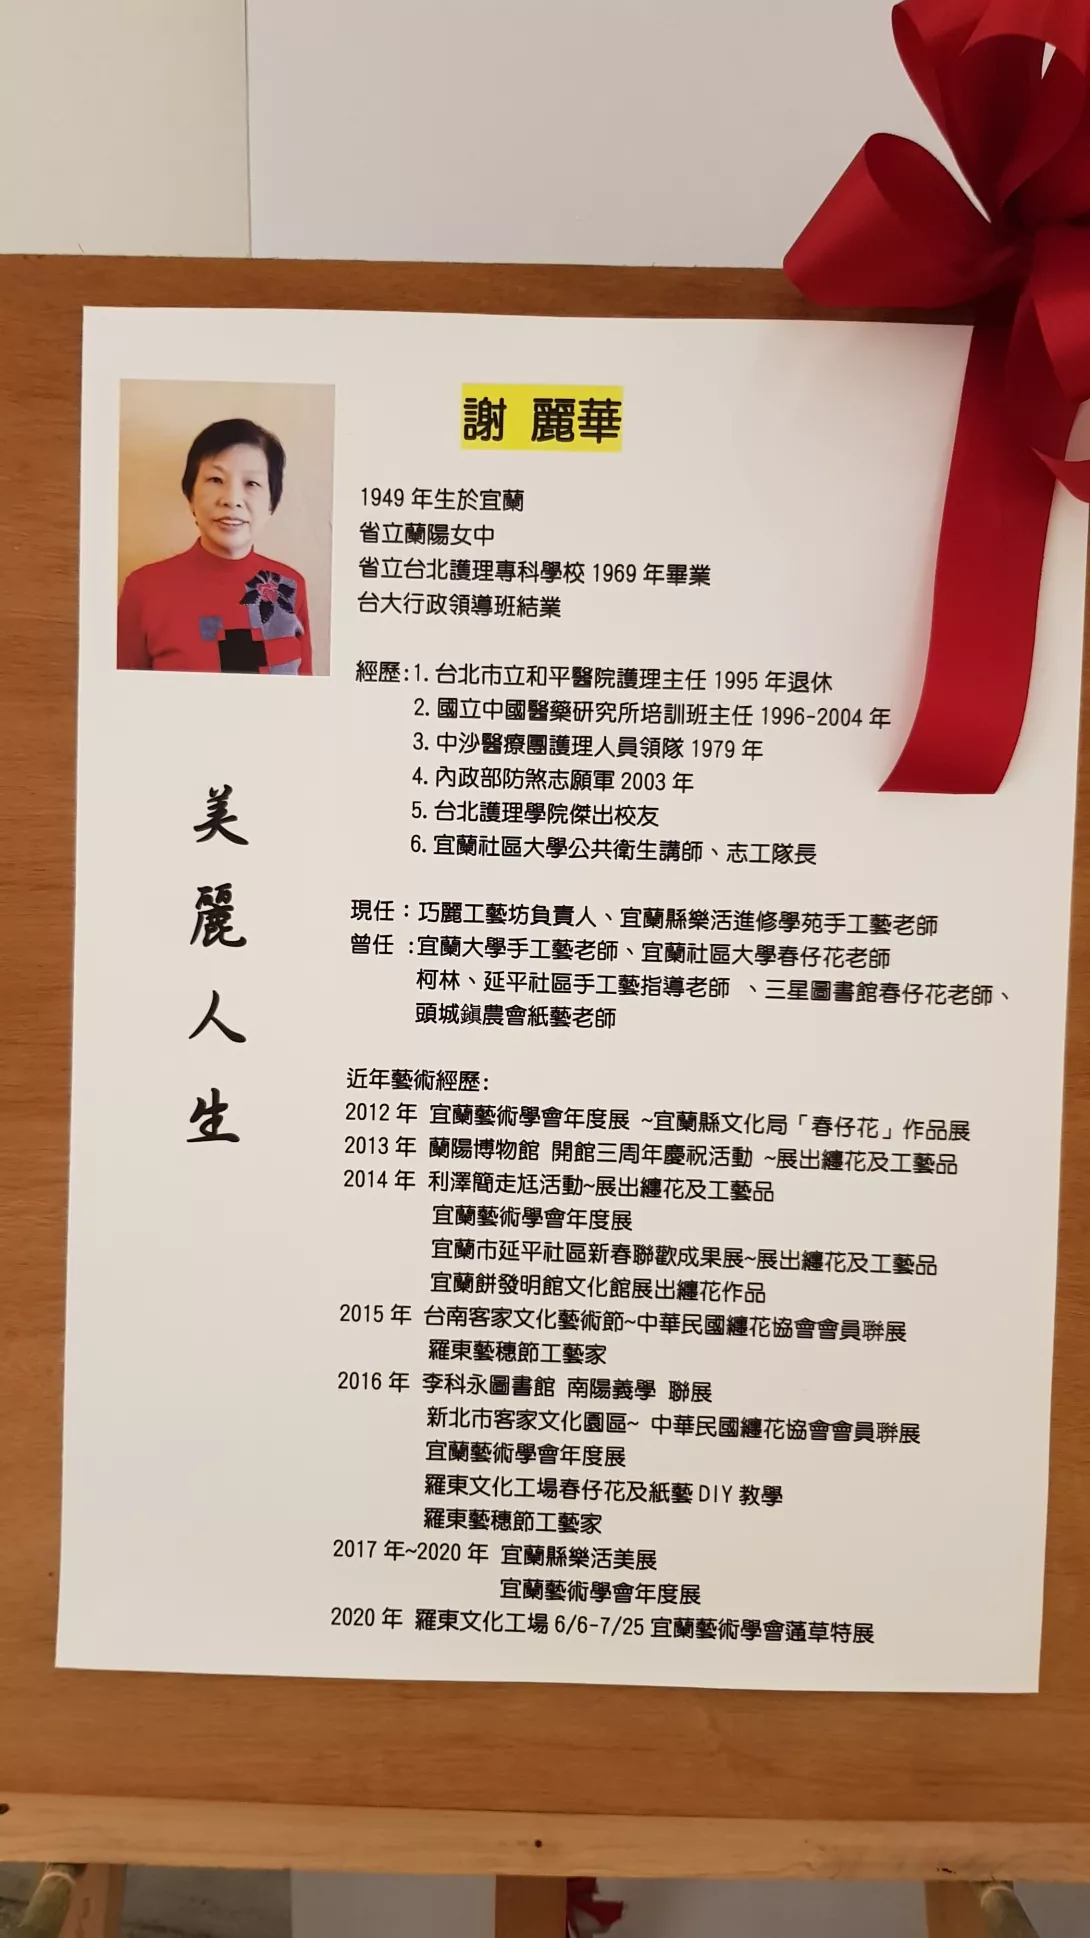 謝 麗華
1949 年生於宜蘭
省立蘭陽女中
省立台北護理專科學校 1969 年畢業
台大行政領導班結業
經歷:1. 台北市立和平醫院護理主任 1995 年退休
2. 國立中國醫藥研究所培訓班主任 1996-2004 年
3. 中沙醫療團護理人員領隊 1979 年
4. 內政部防煞志願軍 2003 年
5. 台北護理學院傑出校友
6. 宜蘭社區大學公共衛生講師、志工隊長
美麗人生
現任：巧麗工藝坊負責人、宜蘭縣樂活進修學苑手工藝老師
曾任 :宜蘭大學手工藝老師、宜蘭社區大學春仔花老師
柯林、延平社區手工藝指導老師 、三星圖書館春仔花老師、
頭城鎮農會紙藝老師
近年藝術經歷:
2012 年 宜蘭藝術學會年度展 ~宜蘭縣文化局「春仔花」作品展
2013 年 蘭陽博物館 開館三周年慶祝活動 ~展出纏花及工藝品
2014 年 利澤簡走尪活動~展出纏花及工藝品
宜蘭藝術學會年度展
宜蘭市延平社區新春聯歡成果展~展出纏花及工藝品
宜蘭餅發明館文化館展出纏花作品
2015 年 台南客家文化藝術節~中華民國纏花協會會員聯展
羅東藝穗節工藝家
2016 年 李科永圖書館 南陽義學 聯展
新北市客家文化園區~ 中華民國纏花協會會員聯展
宜蘭藝術學會年度展
羅東文化工場春仔花及紙藝 DIY 教學
羅東藝穗節工藝家
2017 年~2020 年 宜蘭縣樂活美展
宜蘭藝術學會年度展
2020 年 羅東文化工場 6/6-7/25 宜蘭藝術學會薀草特展